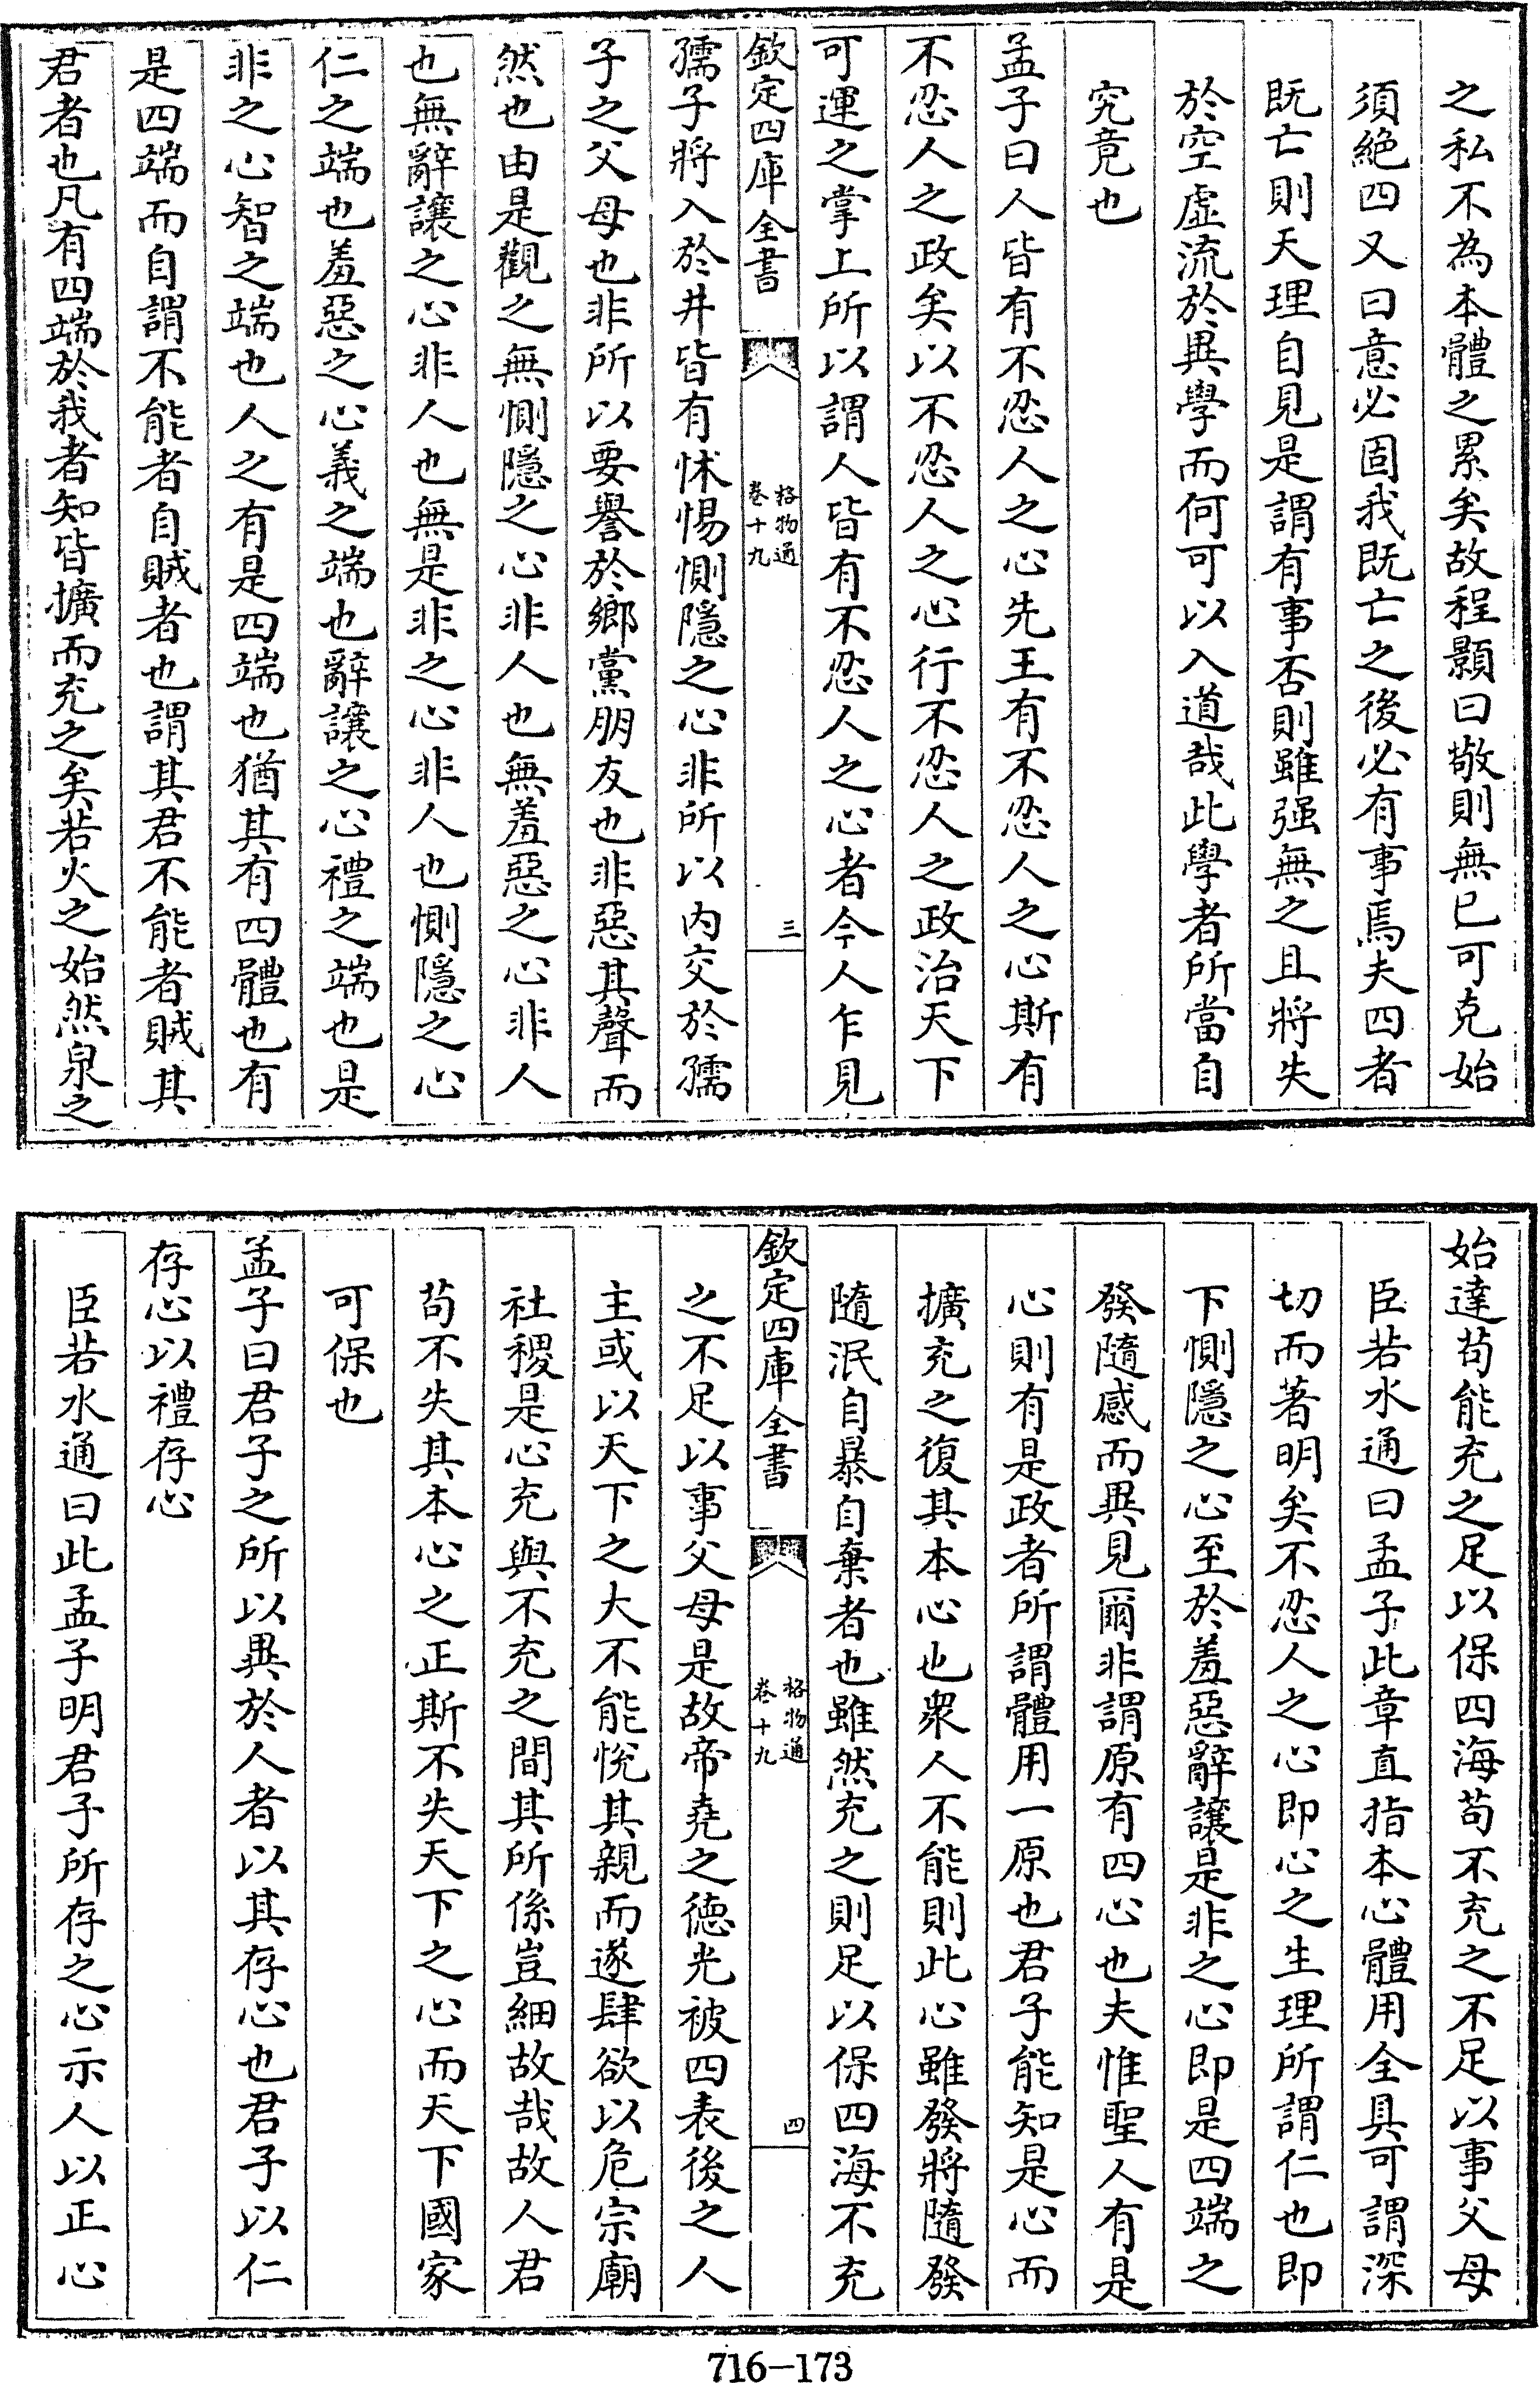 之私不為本體之累矣故程顥曰敬則無己可克始
須絶四又曰意必固我既亡之後必有事焉夫四者
既亡則天理自見是謂有事否則雖强無之且將失
於空虛流於異學而何可以入道哉此學者所當自
究竟也
孟子曰人皆有不忍人之心先王有不忍人之心斯有
不忍人之政矣以不忍人之心行不忍人之政治天下
可運之掌上所以謂人皆有不忍人之心者今人乍見
欽定四庫全書
格物通
卷十九
三
孺子將入於井皆有怵惕惻隱之心非所以内交於孺
子之父母也非所以要譽於鄉黨朋友也非惡其聲而
然也由是觀之無惻隱之心非人也無羞惡之心非人
也無辭讓之心非人也無是非之心非人也惻隱之心
仁之端也羞惡之心義之端也辭讓之心禮之端也是
非之心智之端也人之有是四端也猶其有四體也有
是四端而自謂不能者自賊者也謂其君不能者賊其
君者也凡有四端於我者知皆擴而充之矣若火之始然泉之
始達苟能充之足以保四海苟不充之不足以事父母
臣若水通曰孟子此章直指本心體用全具可謂深
切而著明矣不忍人之心即心之生理所謂仁也即
下惻隱之心至於羞惡辭讓是非之心即是四端之
發隨感而異見爾非謂原有四心也夫惟聖人有是
心則有是政者所謂體用一原也君子能知是心而
擴充之復其本心也衆人不能則此心雖發將隨發
隨泯自暴自棄者也雖然充之則足以保四海不充
欽定四庫全書
格物通
卷十九
四
之不足以事父母是故帝堯之德光被四表後之人
主或以天下之大不能悅其親而遂肆欲以危宗廟
社稷是心充與不充之間其所係豈細故哉故人君
苟不失其本心之正斯不失天下之心而天下國家
可保也
孟子曰君子之所以異於人者以其存心也君子以仁
存心以禮存心
臣若水通曰此孟子明君子所存之心示人以正心
716-173